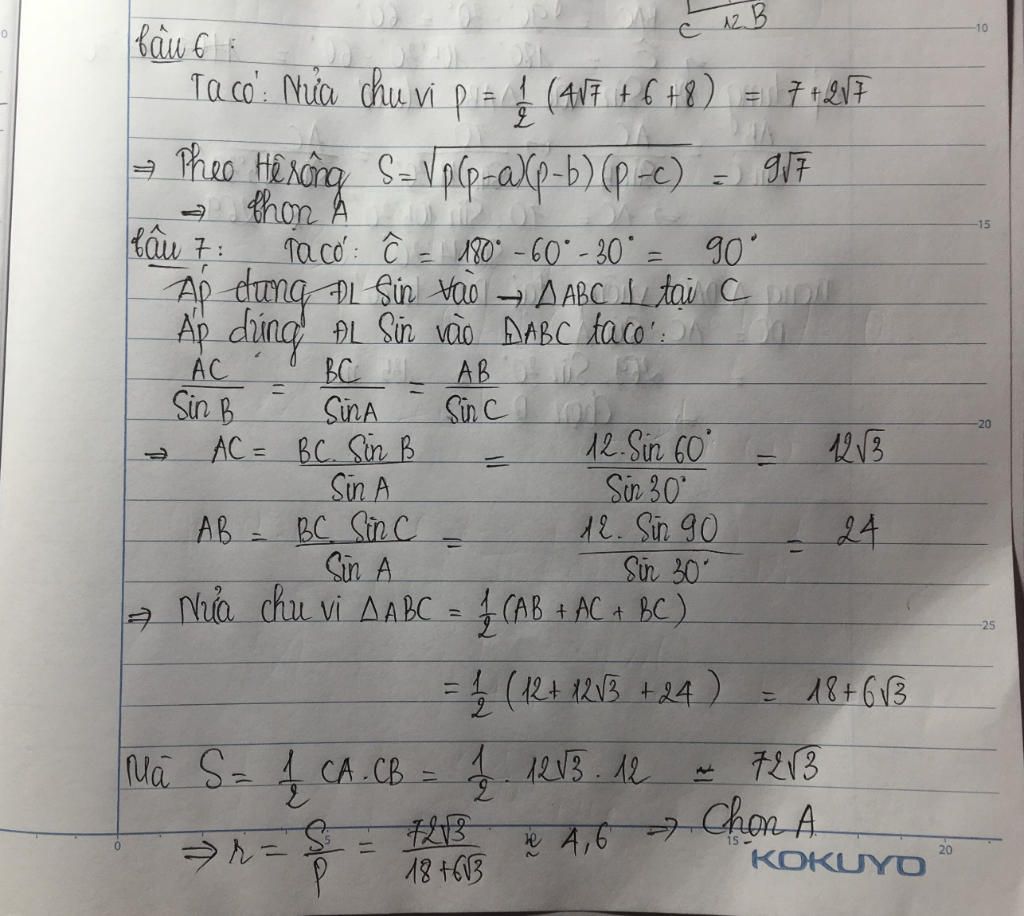 C 12 B
10
Câu 6:
Ta có: Nửa chu vi p = 1/2 (4√7 + 6 + 8) = 7 + 2√7
⇒ Theo Hê rông S = √p(p-a)(p-b)(p-c) = 9√7
⇒ Chọn A
15
Câu 7: Ta có: Ĉ = 180° - 60° - 30° = 90°
Áp dụng ĐL Sin vào → ΔABC ⊥ tại C
Áp dụng ĐL Sin vào ΔABC ta có:
AC/Sin B = BC/Sin A = AB/Sin C
20
⇒ AC = BC. Sin B/Sin A = 12.Sin 60°/Sin 30° = 12√3
AB = BC Sin C/Sin A = 12. Sin 90/Sin 30° = 24
⇒ Nửa chu vi ΔABC = 1/2 (AB + AC + BC)
25
= 1/2 (12 + 12√3 + 24) = 18 + 6√3
Mà S = 1/2 CA.CB = 1/2 . 12√3 . 12 = 72√3
⇒ r = S/p = 72√3/(18+6√3) ≈ 4,6 ⇒ Chọn A
0 5 15 20
KOKUYO